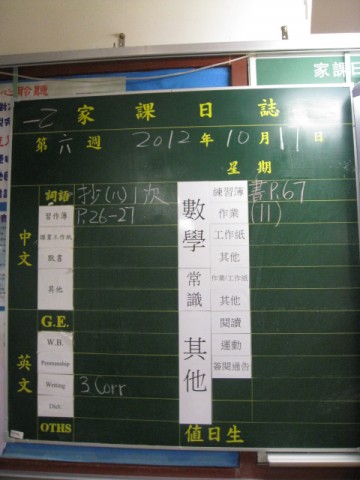 一乙 家課日誌
第六週 2012年10月11日
星期
中文
詞語 抄(八)1次
習作簿 P.26-27
默書
其他
G.E.
英文
W.B.
Penmanship
Writing 3 Corr
Dict.
OTHS
數學
練習簿 書P.67
作業 (11)
工作紙
其他
常識
作業/工作紙
其他
其他
閱讀
運動
簽閱通告
值日生
家課日